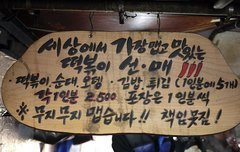 세상에서 가장 맵고 맛있는
떡볶이 선·매 !!!
·떡볶이 순대 오뎅 ·김밥·튀김 (1인분에 5개)
각 1인분 2,500 포장은 1인분씩
※ 무지무지 맵습니다!! 책임못짐!